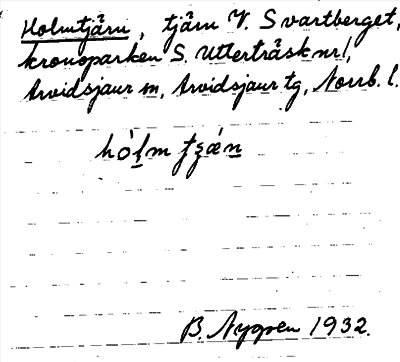 Holmtjärn, tjärn V. Svartberget,
kronoparken S. Utterträsk nr 1,
Arvidsjaur sn, Arvidsjaur tg, Norrb. l.
hòlm tʂæ̀n
B. Nygren 1932.